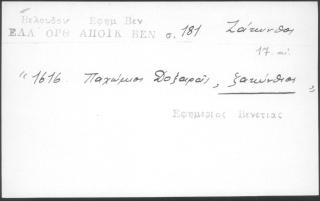 Βελουδου Εφημ Βεν
ΕΛΛ ΟΡΘ ΑΠΟΙΚ ΒΕΝ σ. 181 Ζάκυνθος
17. αι.
"1616. Παχώμιος Δοξαρᾶς, ξακύνθιος
Εφημεριος Βενετιας